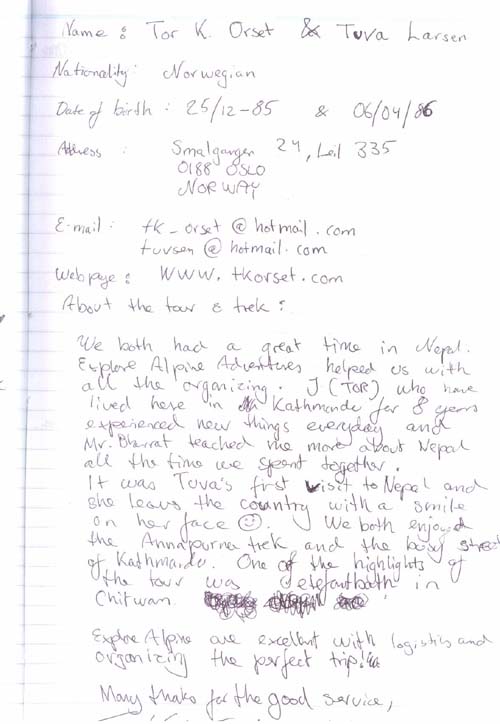 Name : Tor K. Orset & Tuva Larsen
Nationality : Norwegian
Date of birth : 25/12-85 & 06/04/86
Address : Smalgangen 24, Leil 335
0188 OSLO
NORWAY
E-mail : tk_orset@hotmail.com
tuvsen@hotmail.com
Webpage : WWW.tkorset.com
About the tour & trek :
We both had a great time in Nepal.
Explore Alpine Adventures helped us with
all the organizing. I (TOR) who have
lived here in Kathmandu for 8 years
experienced new things everyday and
Mr. Bharat teached me more about Nepal
all the time we spent together.
It was Tuva's first visit to Nepal and
she leaves the country with a smile
on her face ☺. We both enjoyed
the Annapurna trek and the busy streets
of Kathmandu. One of the highlights of
the tour was elefantbath in
Chitwan.
Explore Alpine are excellent with logistics and
organizing the perfect trip!
Many thaks for the good service,